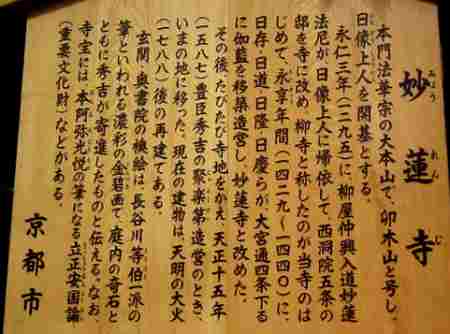 妙蓮寺
みょうれんじ
本門法華宗の大本山で、卯木山と号し、
日像上人を開基とする。
永仁三年（一二九五）に、柳屋仲興入道妙蓮
法尼が日像上人に帰依して、西洞院五条の
邸を寺に改め、柳寺と称したのが当寺のは
じめで、永享年間（一四二九〜一四四〇）に、
日存・日道・日隆・日慶らが、大宮通四条下る
に伽藍を移築造営し、妙蓮寺と改めた。
その後、たびたび寺地をかえ、天正十五年
（一五八七）豊臣秀吉の聚楽第造営のとき、
いまの地に移った。現在の建物は、天明の大火
（一七八八）後の再建である。
玄関、奥書院の襖絵は、長谷川等伯一派の
筆といわれる濃彩の金碧画で、庭内の奇石と
ともに秀吉が寄進したものと伝える。なお
寺宝には、本阿弥光悦の筆になる立正安国論
（重要文化財）などがある。
京都市